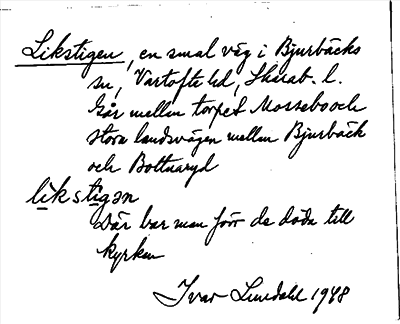 Likstigen, en smal väg i Bjurbäcks
sn, Vartofta hd, Skarab. l.
Går mellan torpet Mossebo och
stora landsvägen mellan Bjurbäck
och Bottnaryd
likstigən
Där bar man förr de döda till
kyrkan
Ivar Lundahl 1948